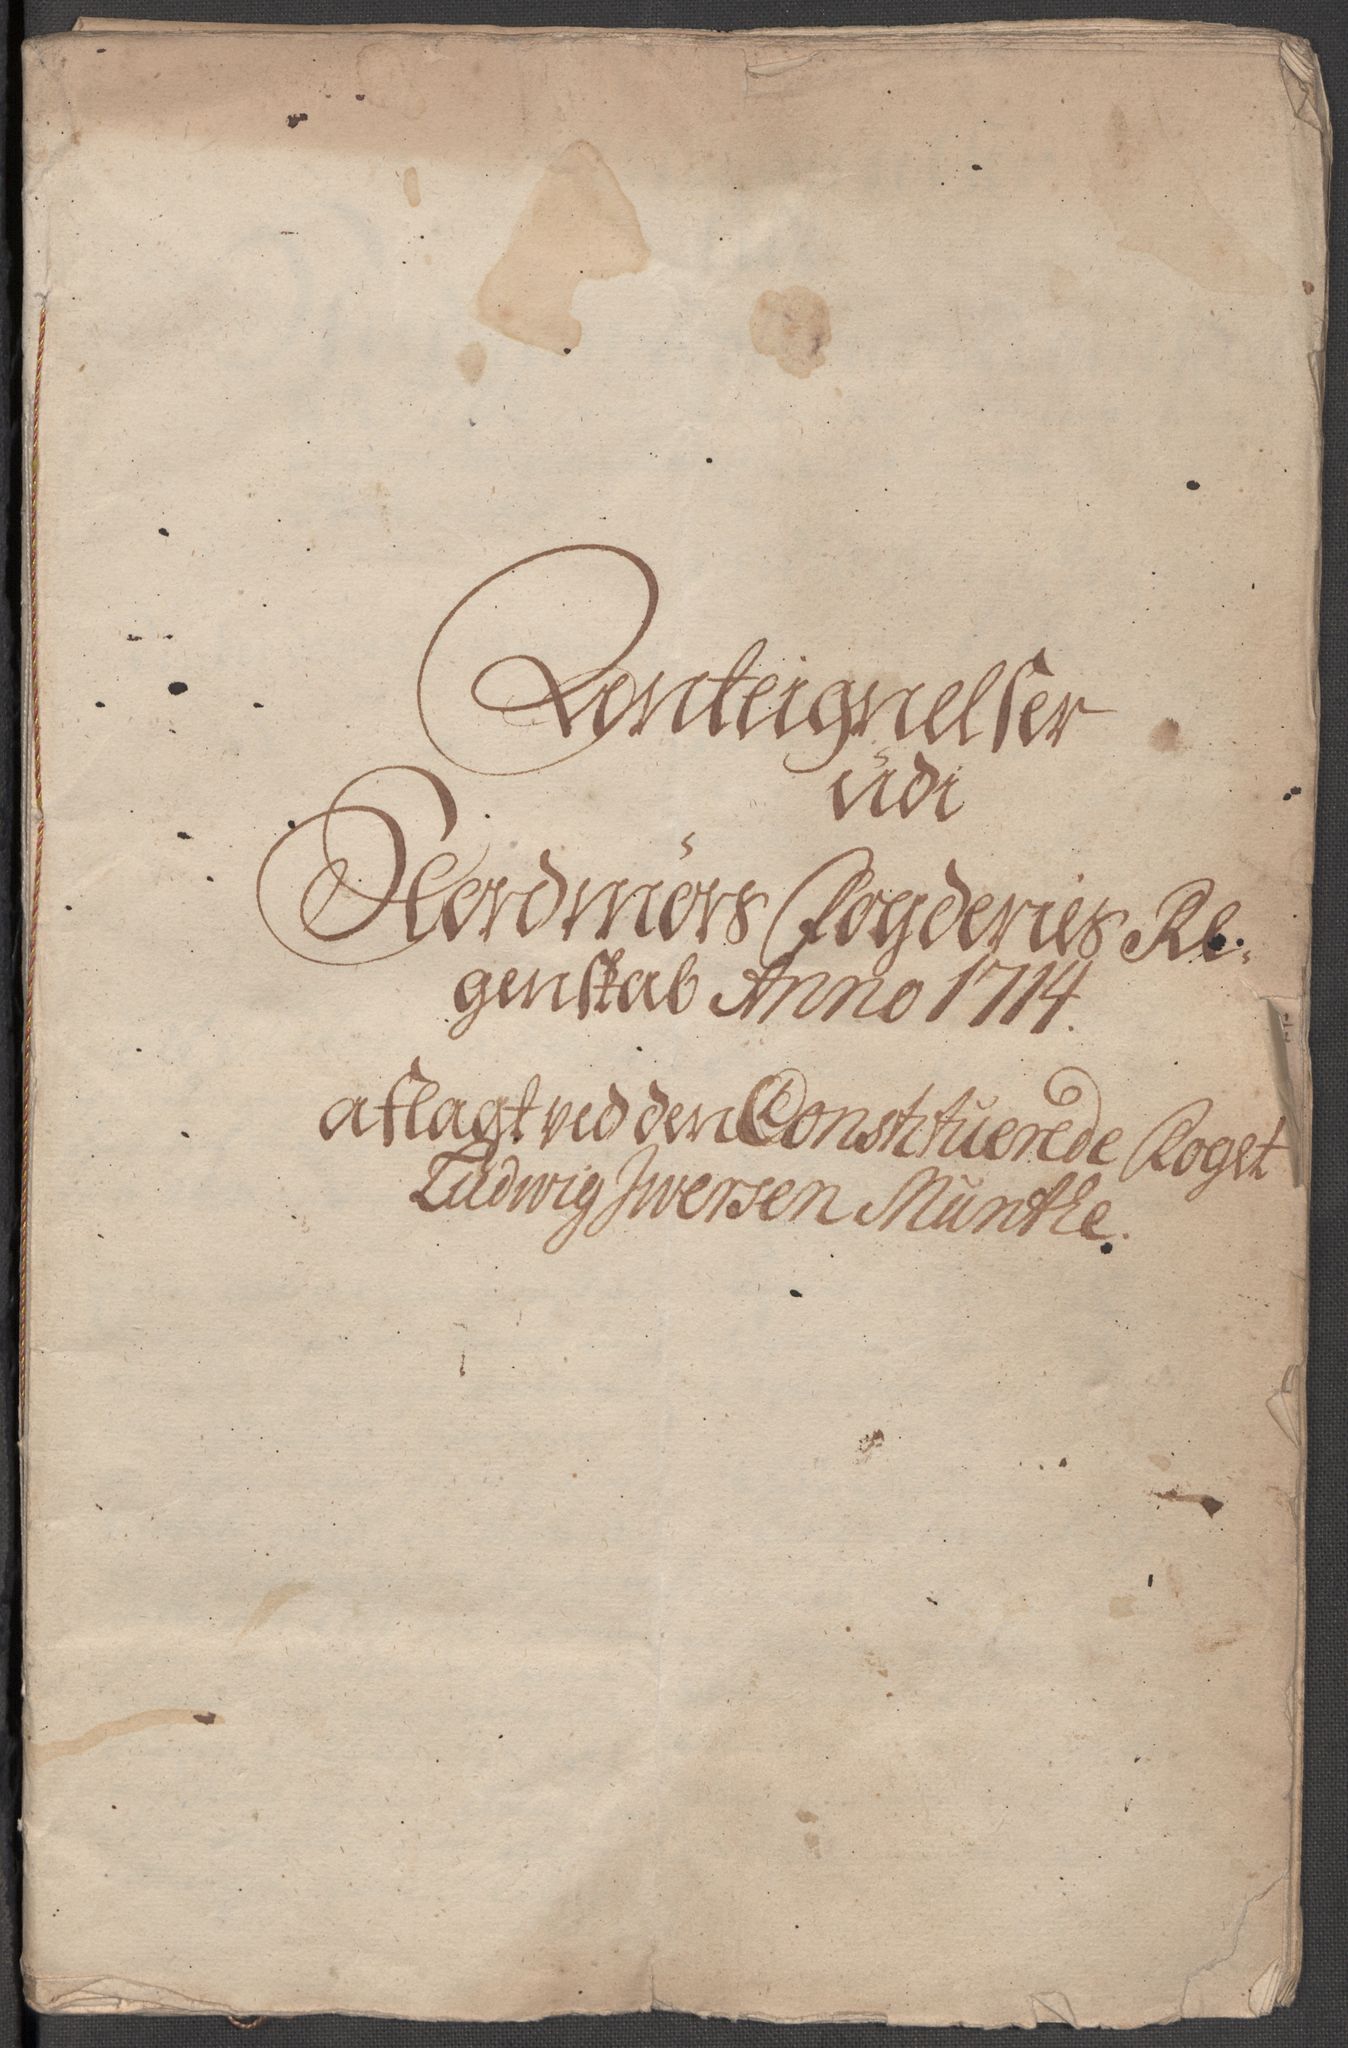 Antteignelser
udi
Nordmörs Fogderies Re-
genskab Anno 1714.
aflagt ved den Constituerede Foget
Ludwig Iwersen Munthe.